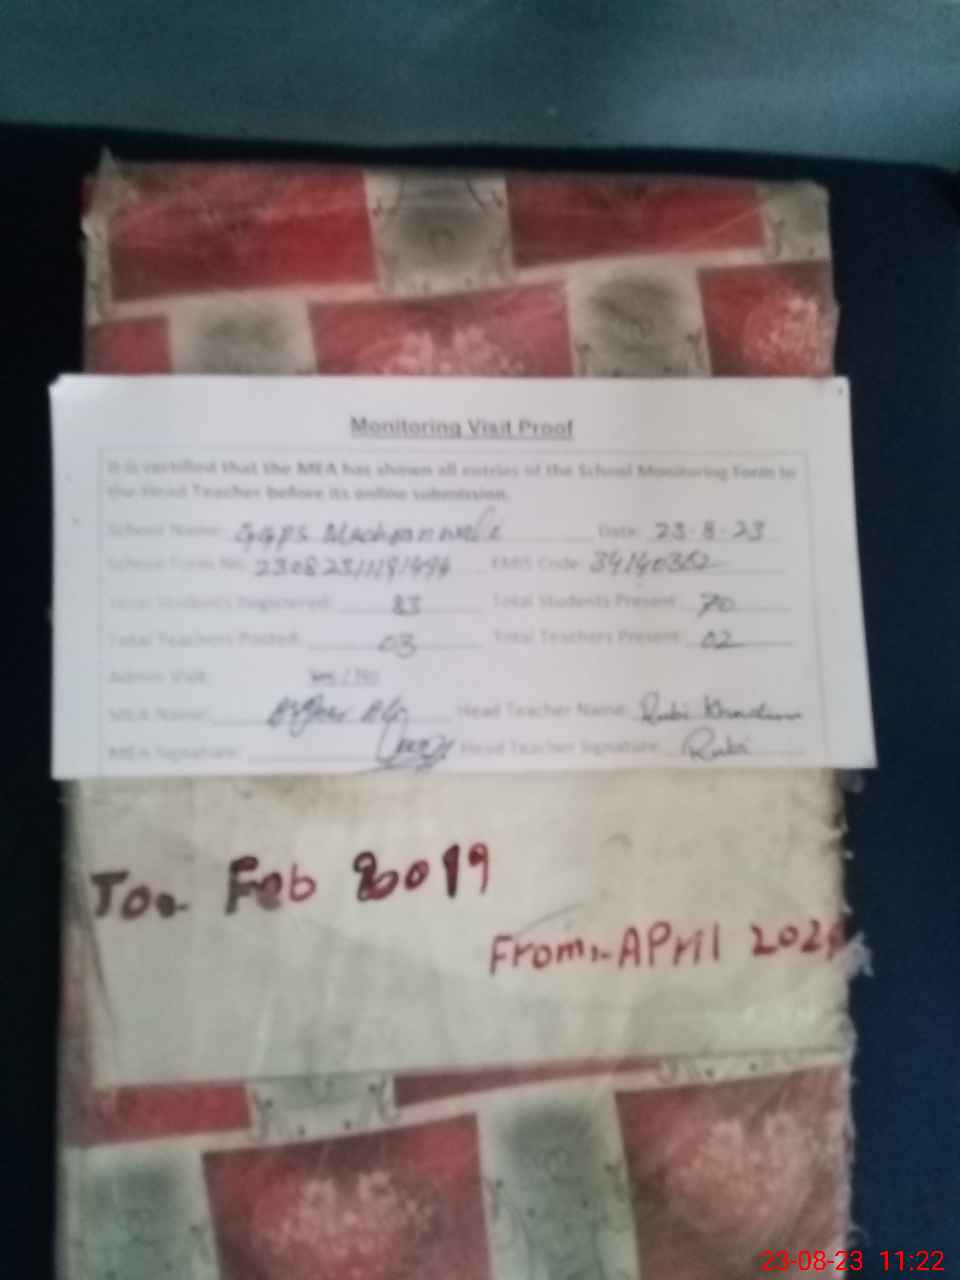 Monitoring Visit Proof
It is certified that the MEA has shown all entries of the School Monitoring Form to
the Head Teacher before its online submission.
School Name: GGPS Date: 23-8-23
School Form No: EMIS Code: 34140362
Total Students Registered: 83 Total Students Present: 70
Total Teachers Posted: 03 Total Teachers Present: 02
Admin Visit: Yes / No
MEA Name: Head Teacher Name: Rubi
MEA Signature: Head Teacher Signature: Rubi
To:- Feb 2019
From:- APril 202
23-08-23 11:22